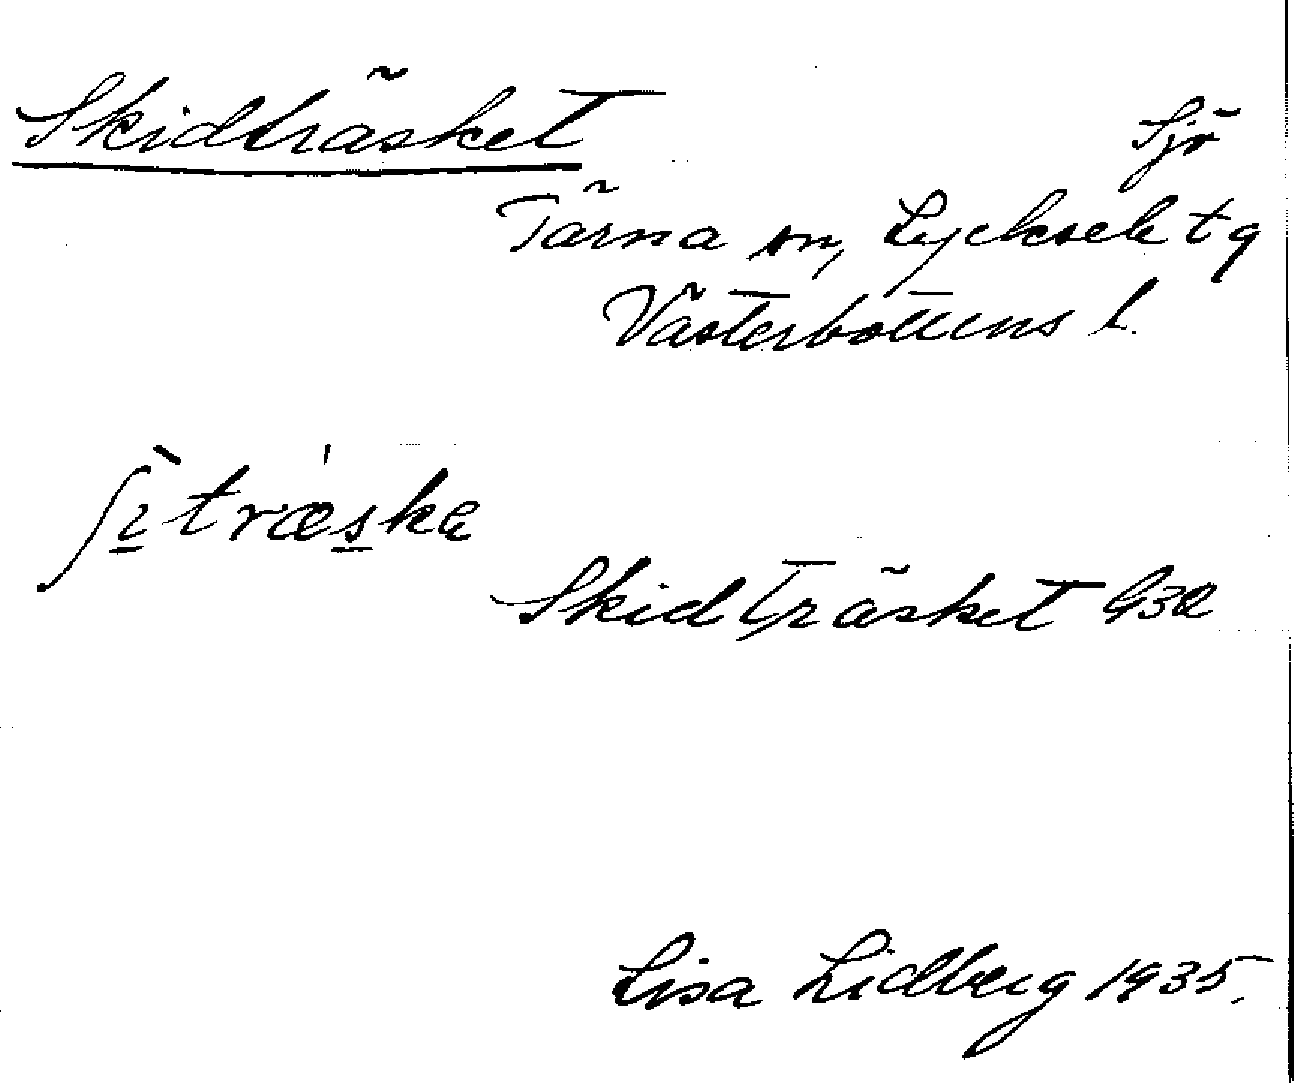 Skidträsket
Sjö
Tärna sn, Lycksele tg
Västerbottens l.
ʃɩ̀træ̍ska
Skidträsket G3Q
Lisa Lidberg 1935.